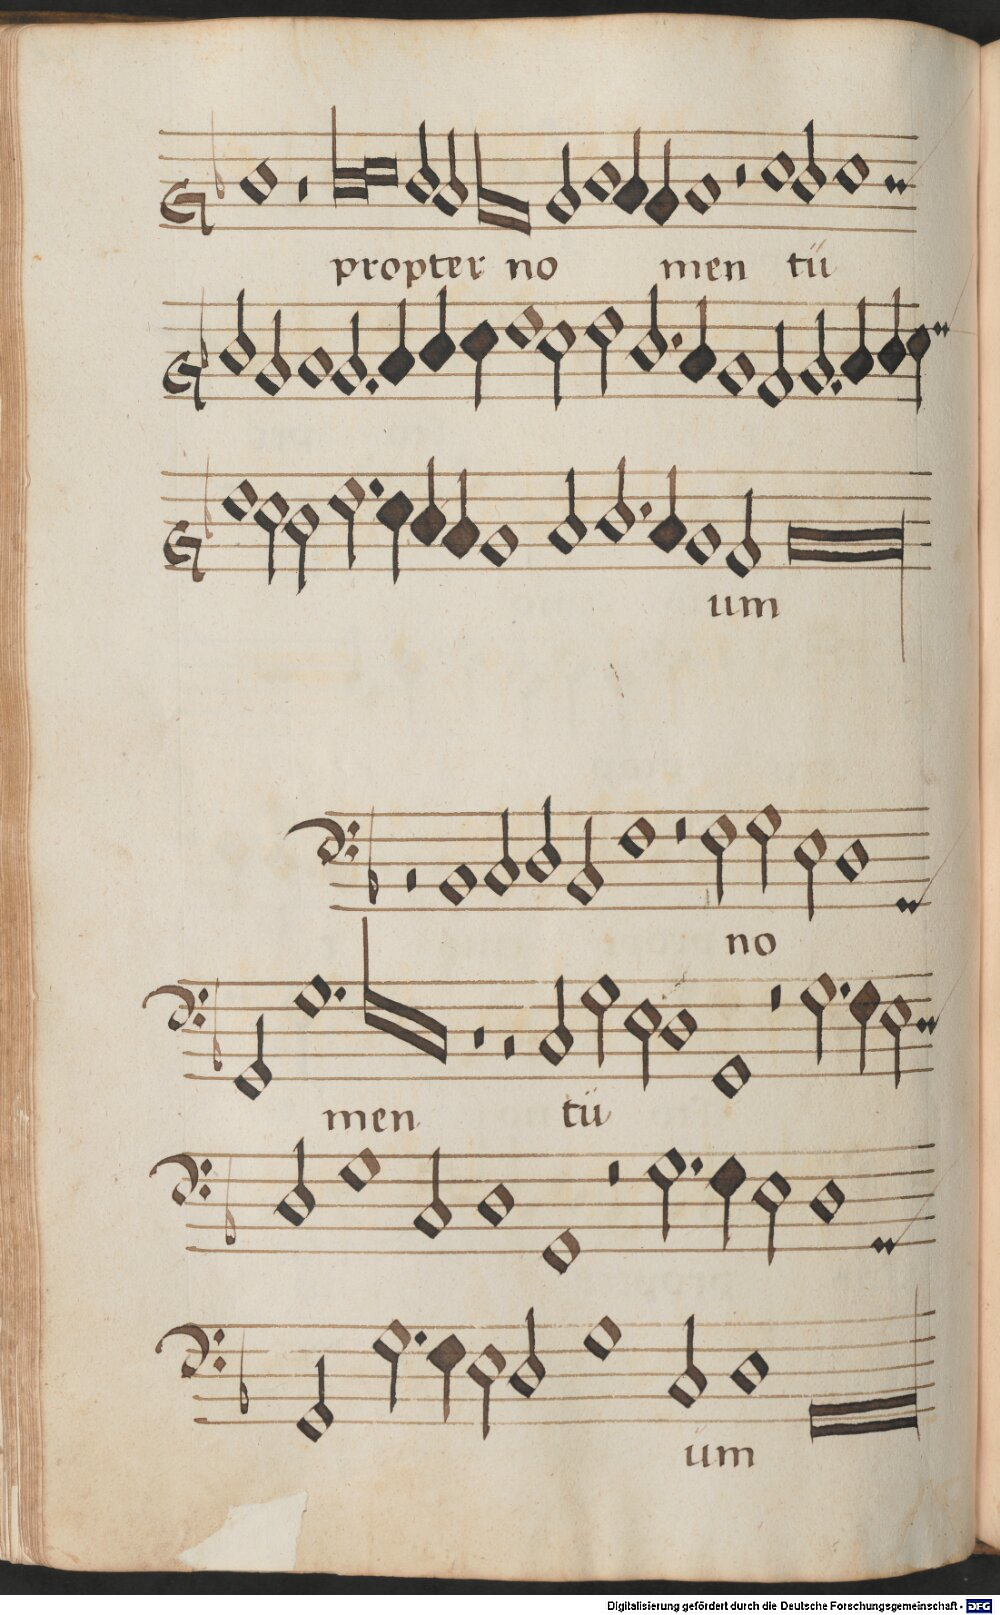 propter no men tū
um
no
men tū
um
Digitalisierung gefördert durch die Deutsche Forschungsgemeinschaft - DFG